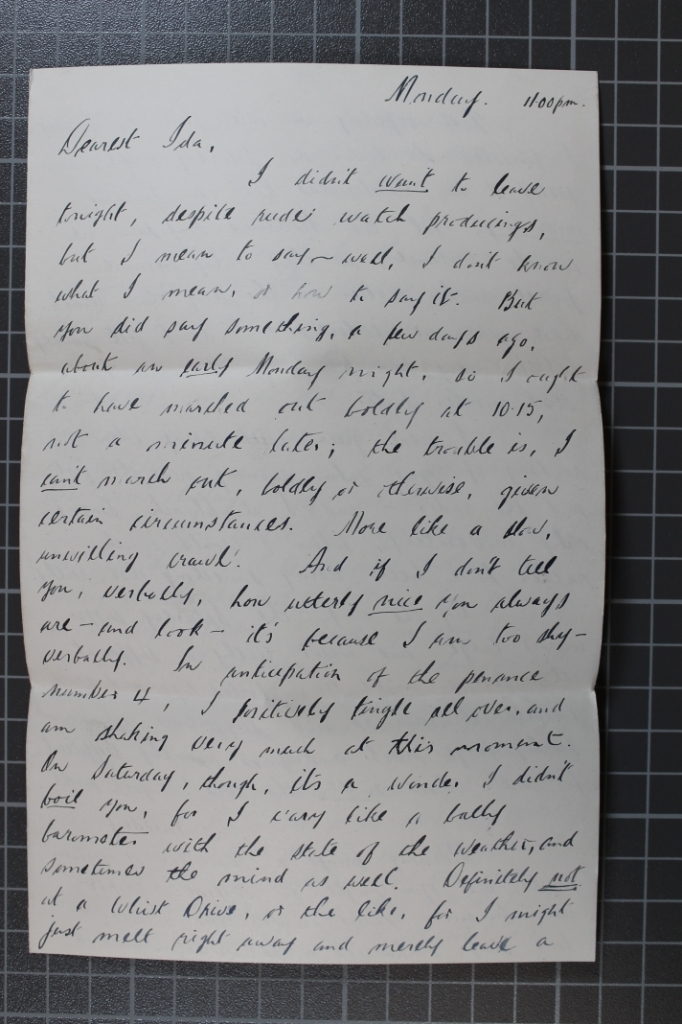 Monday. 11.00pm.
Dearest Ida,
I didn't want to leave
tonight, despite rude watch producings,
but I mean to say — well, I don't know
what I mean, or how to say it. But
you did say something, a few days ago,
about an early Monday night, so I ought
to have marched out boldly at 10.15,
not a minute later; the trouble is, I
can't march out, boldly or otherwise, given
certain circumstances. More like a slow,
unwilling crawl. And if I don't tell
you, verbally, how utterly nice you always
are - and look - it's because I am too shy -
verbally. In anticipation of the penance
number 4, I positively tingle all over, and
am shaking very much at this moment.
On Saturday, though, it's a wonder I didn't
boil you, for I vary like a bally
barometer with the state of the weather, and
sometimes the mind as well. Definitely not
at a Whist Drive, or the like, for I might
just melt right away and merely leave a